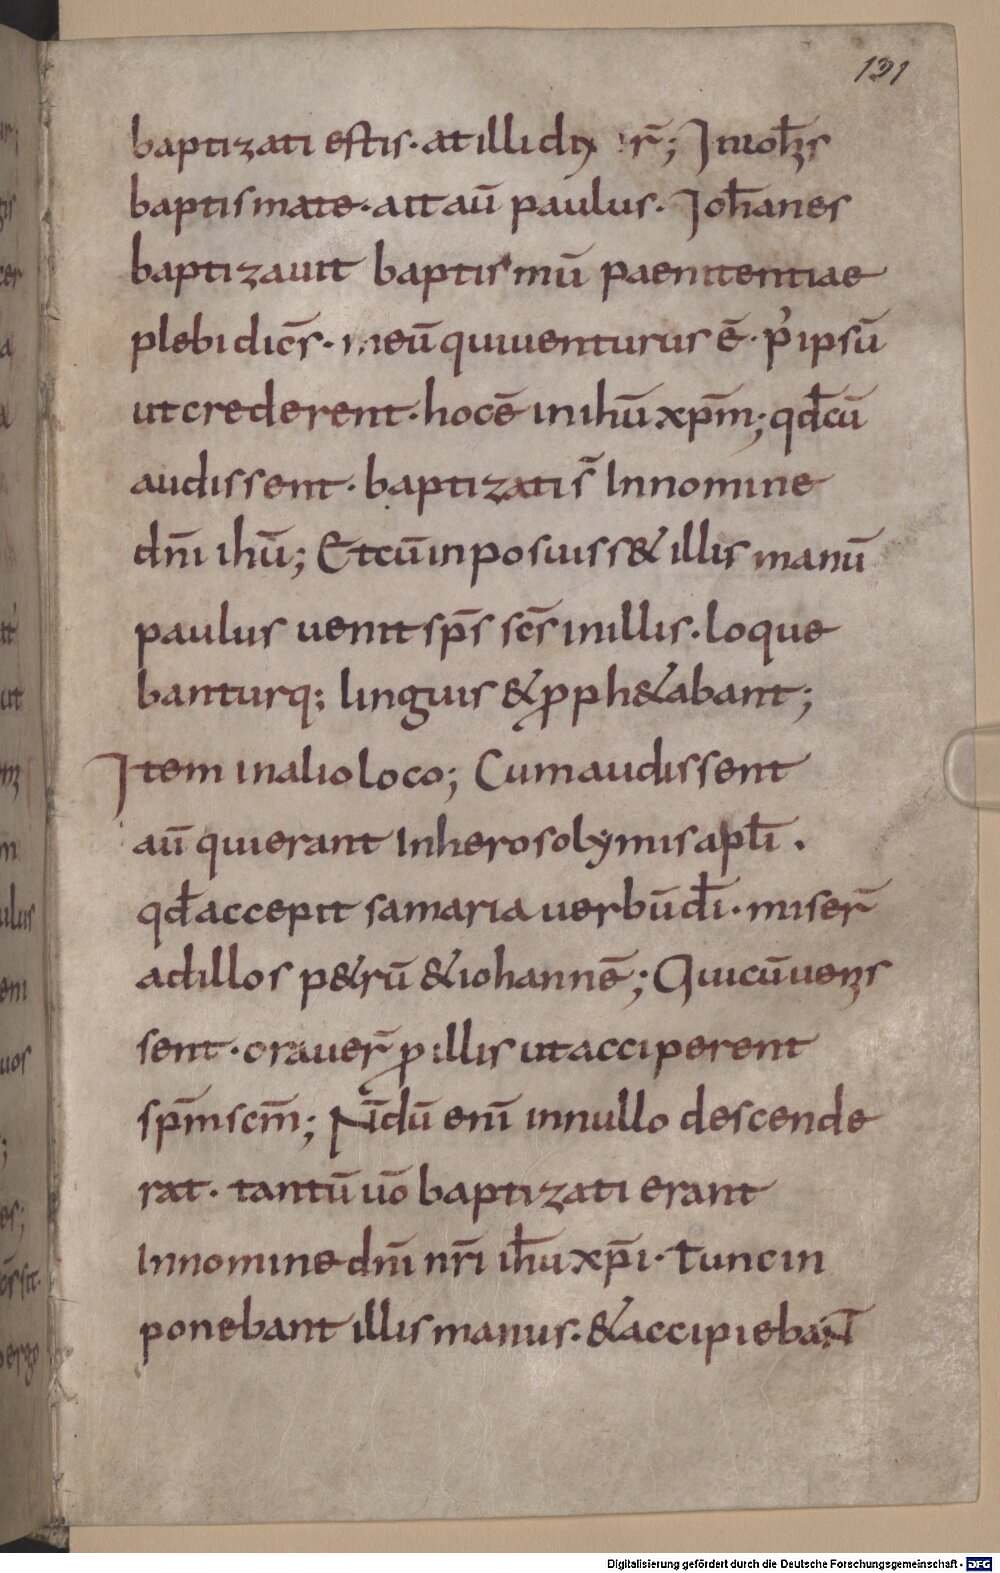 131
baptizati estis · at illi dix  r̄; In ioħis
baptismate · ait aū paulus · Ioħanes
baptizauit baptismū paenitentiae
plebi dicēs · in eū qui uenturus ē · p᾽ ipsū
ut crederent · hoc ē in ihū xp̄m; qđ cū
audissent · baptizati s̄ In nomine
dn̄i ihū; Et cū inposuiss& illis manū
paulus uenit sp̄s sc̄s in illis · loque
bantur q; linguis & ꝓph&abant;
Item in alio loco; Cum audissent
aū qui erant In herosolymis apłi ·
qđ accepit samaria uerbū dī · miser̄
ad illos p&rū & iohannē; Qui cū uenis
sent · orauer̄ ꝓ illis ut acciperent
sp̄m sc̄m; N̄dū eni̅ in nullo descende
rat · tantū uō baptizati erant
In nomine dn̄i nr̄i iħu xp̄i · Tunc in
ponebant illis manus · & accipiebant
Digitalisierung gefördert durch die Deutsche Forschungsgemeinschaft - DFG